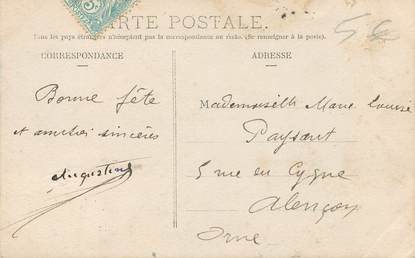 CARTE POSTALE.
Tous les pays étrangers n'acceptent pas la correspondance au recto. (Se renseigner à la poste).
CORRESPONDANCE
ADRESSE
Bonne fête
et amitiés sincères
Augustine
Mademoiselle Marie Louise
Paysant
5 rue en Cygne
Alençon
Orne